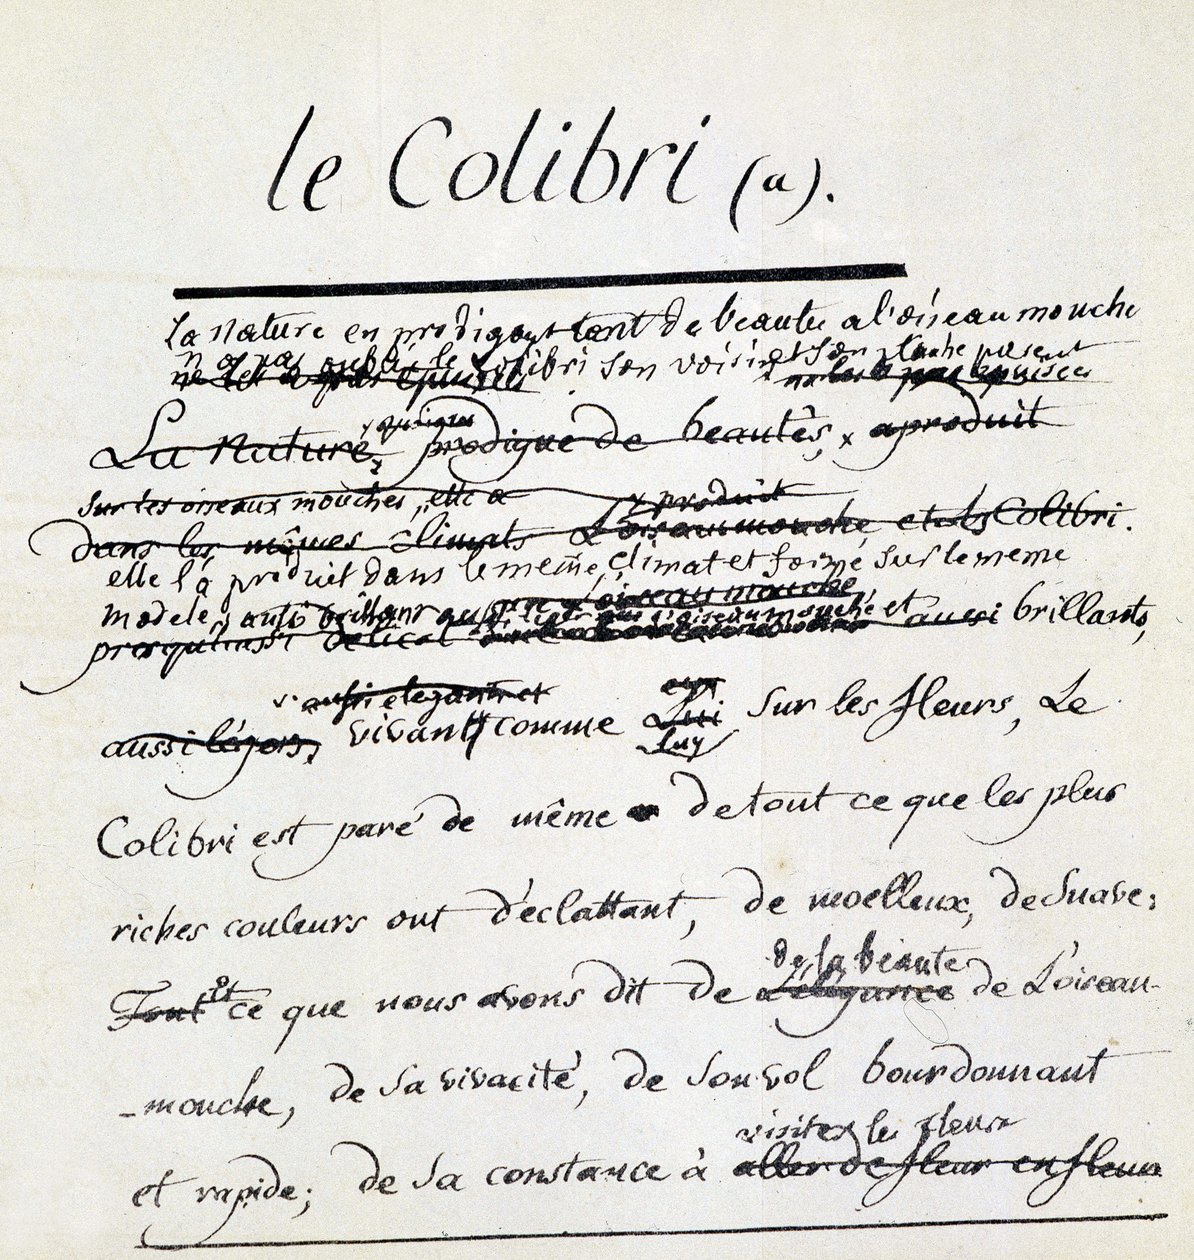 le Colibri (a).
La Nature en prodigant tant de beautés a l'oiseau mouche
n'a pas oublié le Colibri son voisin et son proche parent
ne les a pas epuisées
La Nature prodigue de beautés, a produit
sur les oiseaux mouches, elle a produit
dans les mêmes climats L'oiseau mouche, et les Colibri.
elle l'a produit dans le meme climat et formé sur le meme
modele, aussi brillant l'oiseau mouche
presqu'aussi délicat et aussi brillants,
aussi elegants et
aussi légers, vivant comme Lui Luy sur les fleurs, Le
Colibri est paré de même de tout ce que les plus
riches couleurs ont d'éclattant, de moelleux, de Suave;
de la beauté
Tout et ce que nous avons dit de L'élégance de L'oiseau-
-mouche, de sa vivacité, de son vol bourdonnant
visiter les fleurs
et rapide; de sa constance à aller de fleur en fleur